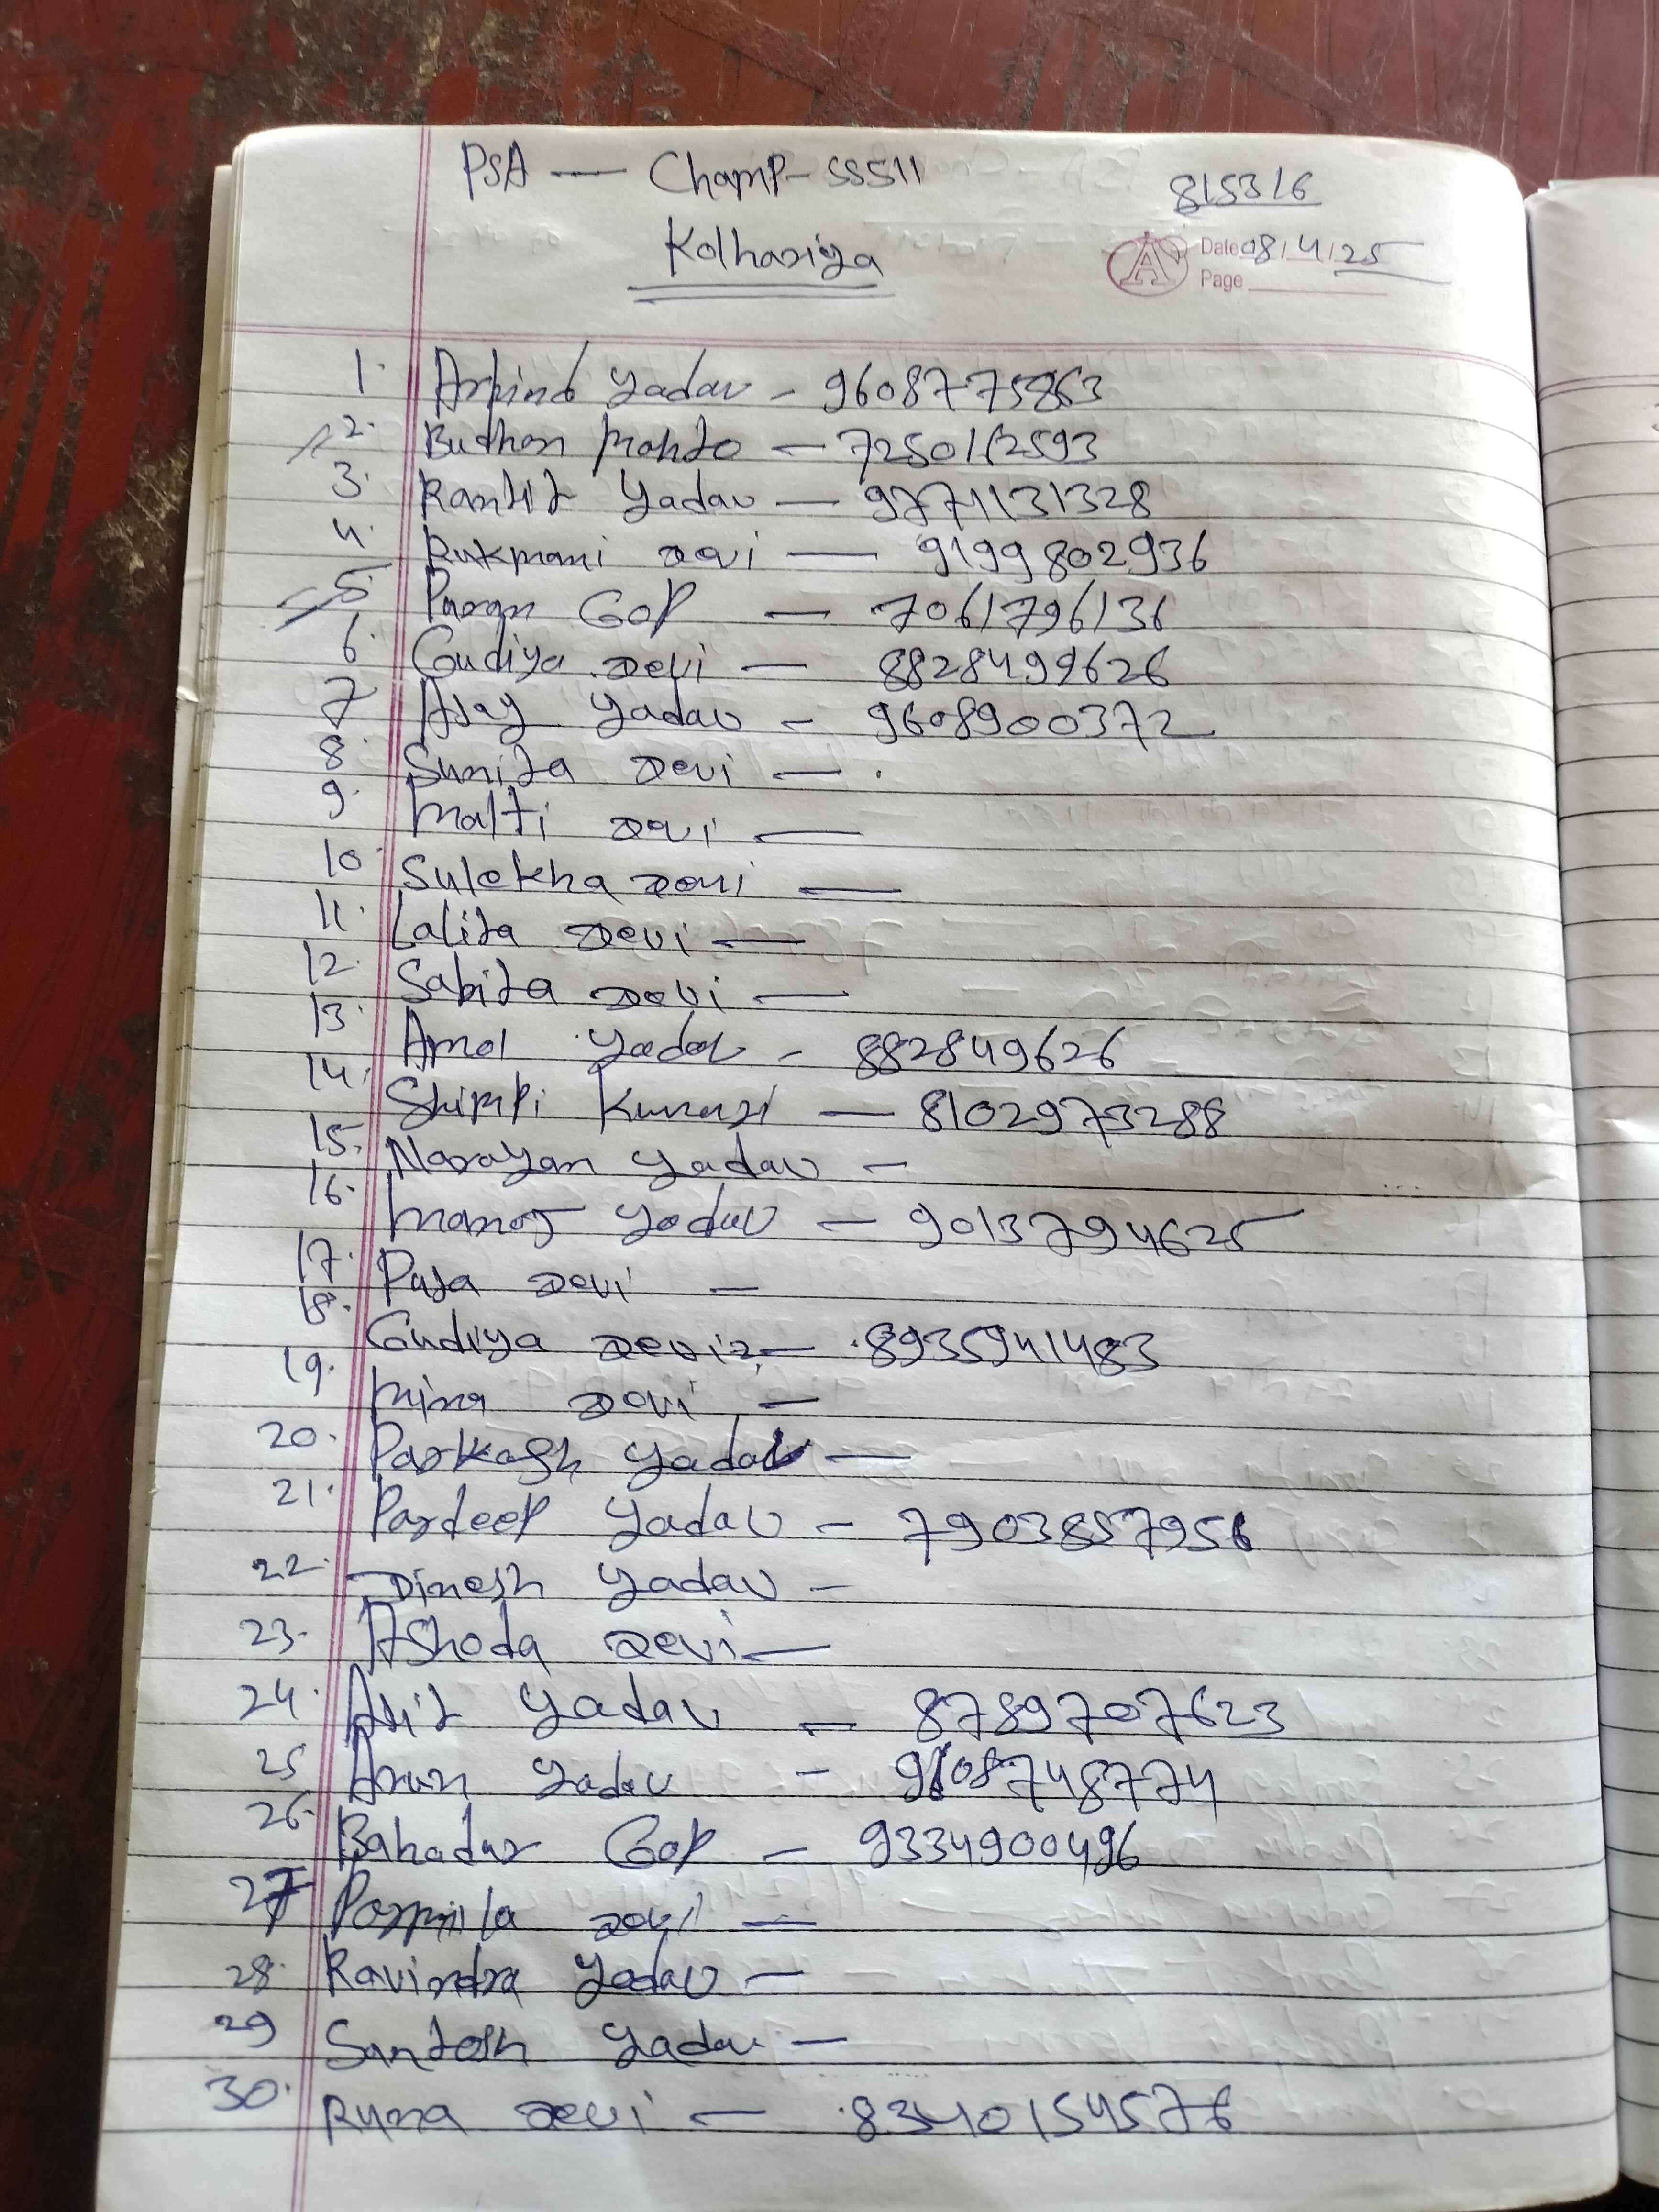 PSA — Champ - SS511
815316
Kolhariya
Date 08/4/25
Page
1. Arbind Yadav - 9608775863
2. Budhan Mahto - 7250162593
3. Ranjit Yadav - 9771131328
4. Rukmani Devi - 9199802936
5. Puran Gop - 7061796136
6. Gudiya Devi - 8828499626
7 Ajay Yadav - 9608900372
8. Sunita Devi -
9. Malti Devi -
10. Sulekha Devi -
11. Lalita Devi -
12. Sabita Devi -
13. Amol Yadav - 882849626
14. Shimpi Kumari - 8102973288
15. Narayan Yadav -
16. Manoj Yadav - 9013794625
17. Puja Devi -
18. Gudiya Devi 2 - 8935941483
19. Mina Devi -
20. Parkash Yadav -
21. Pardeep Yadav - 7903857956
22. Dinesh Yadav -
23. Ashoda Devi -
24. Ajit Yadav - 8789707623
25 Arun Yadav - 9608748774
26. Bahadur Gop - 9334900496
27 Parmila Devi -
28. Ravindra Yadav -
29 Santosh Yadav -
30. Runa Devi - 8340154576